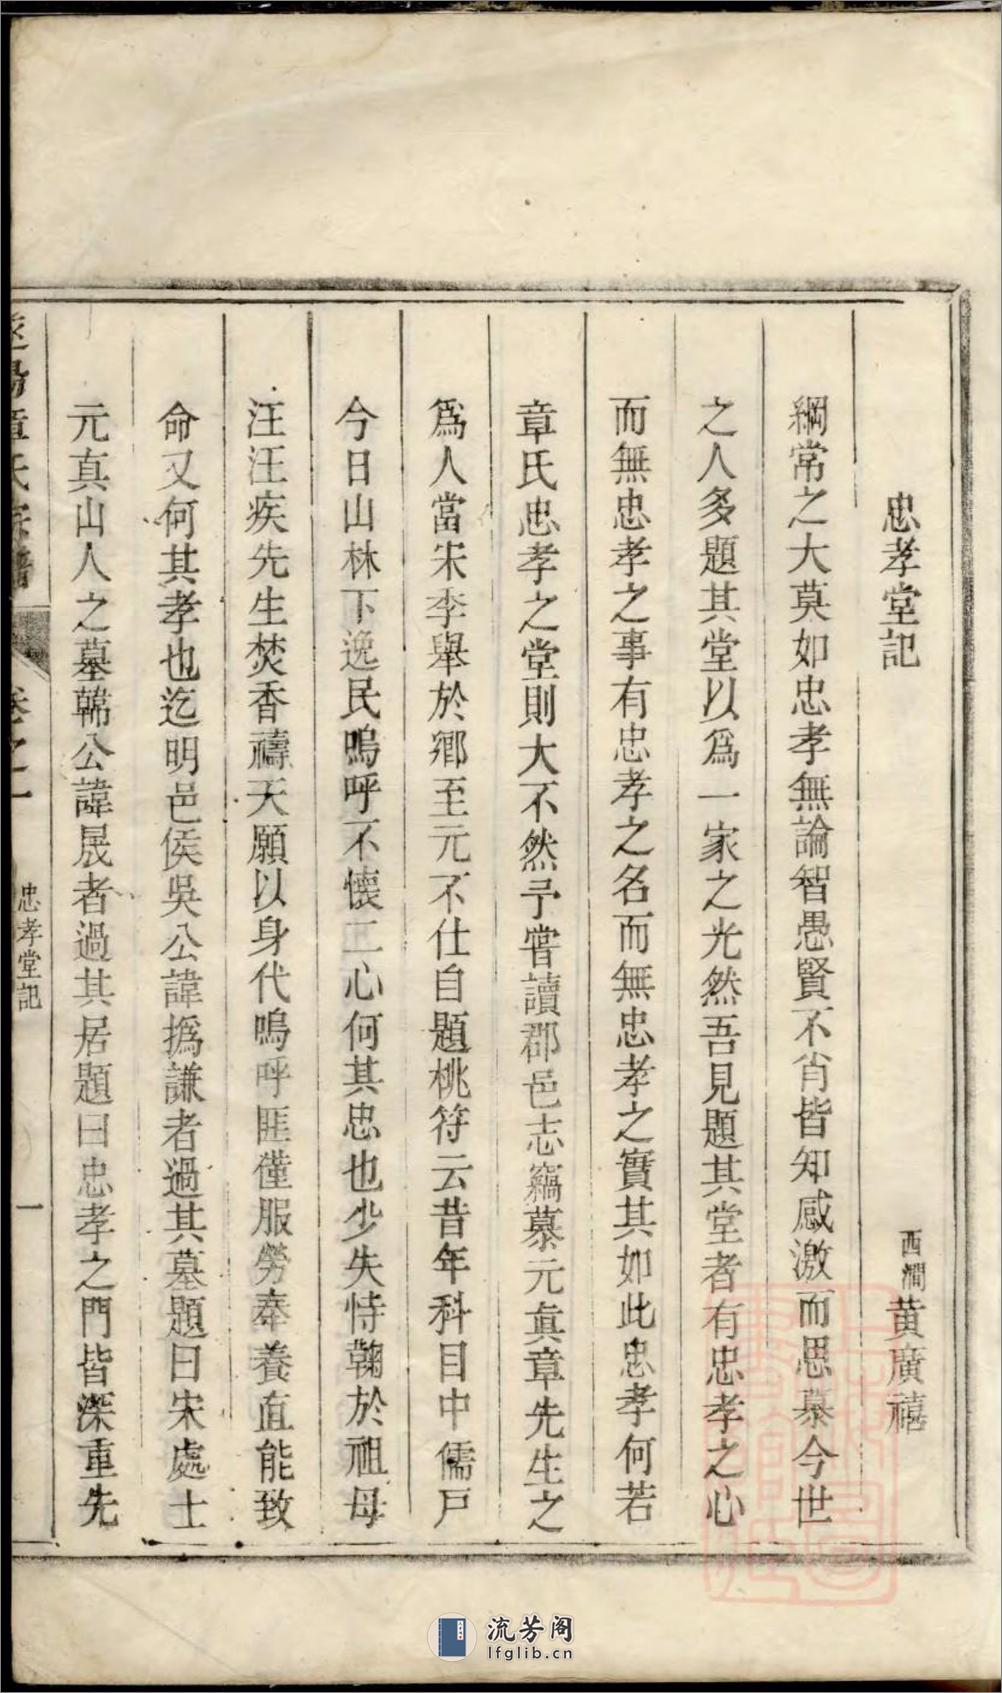 忠孝堂記
西澗黄廣禧
綱常之大莫如忠孝無論智愚賢不肖皆知感激而思慕今世
之人多題其堂以為一家之光然吾見題其堂者有忠孝之心
而無忠孝之事有忠孝之名而無忠孝之實其如此忠孝何若
章氏忠孝之堂則大不然予嘗讀郡邑志竊慕元眞章先生之
爲人當宋季舉於鄉至元不仕自題桃符云昔年科目中儒戸
今日山林下逸民嗚呼不懷二心何其忠也少失恃鞠於祖母
汪汪疾先生焚香禱天願以身代嗚呼匪僅服勞奉養直能致
命又何其孝也迄明邑侯吳公諱撝謙者過其墓題曰宋處士
元真山人之墓韓公諱晟者過其居題曰忠孝之門皆深重先
章氏宗譜
卷之一
忠孝堂記
一
流芳阁
lfglib.cn